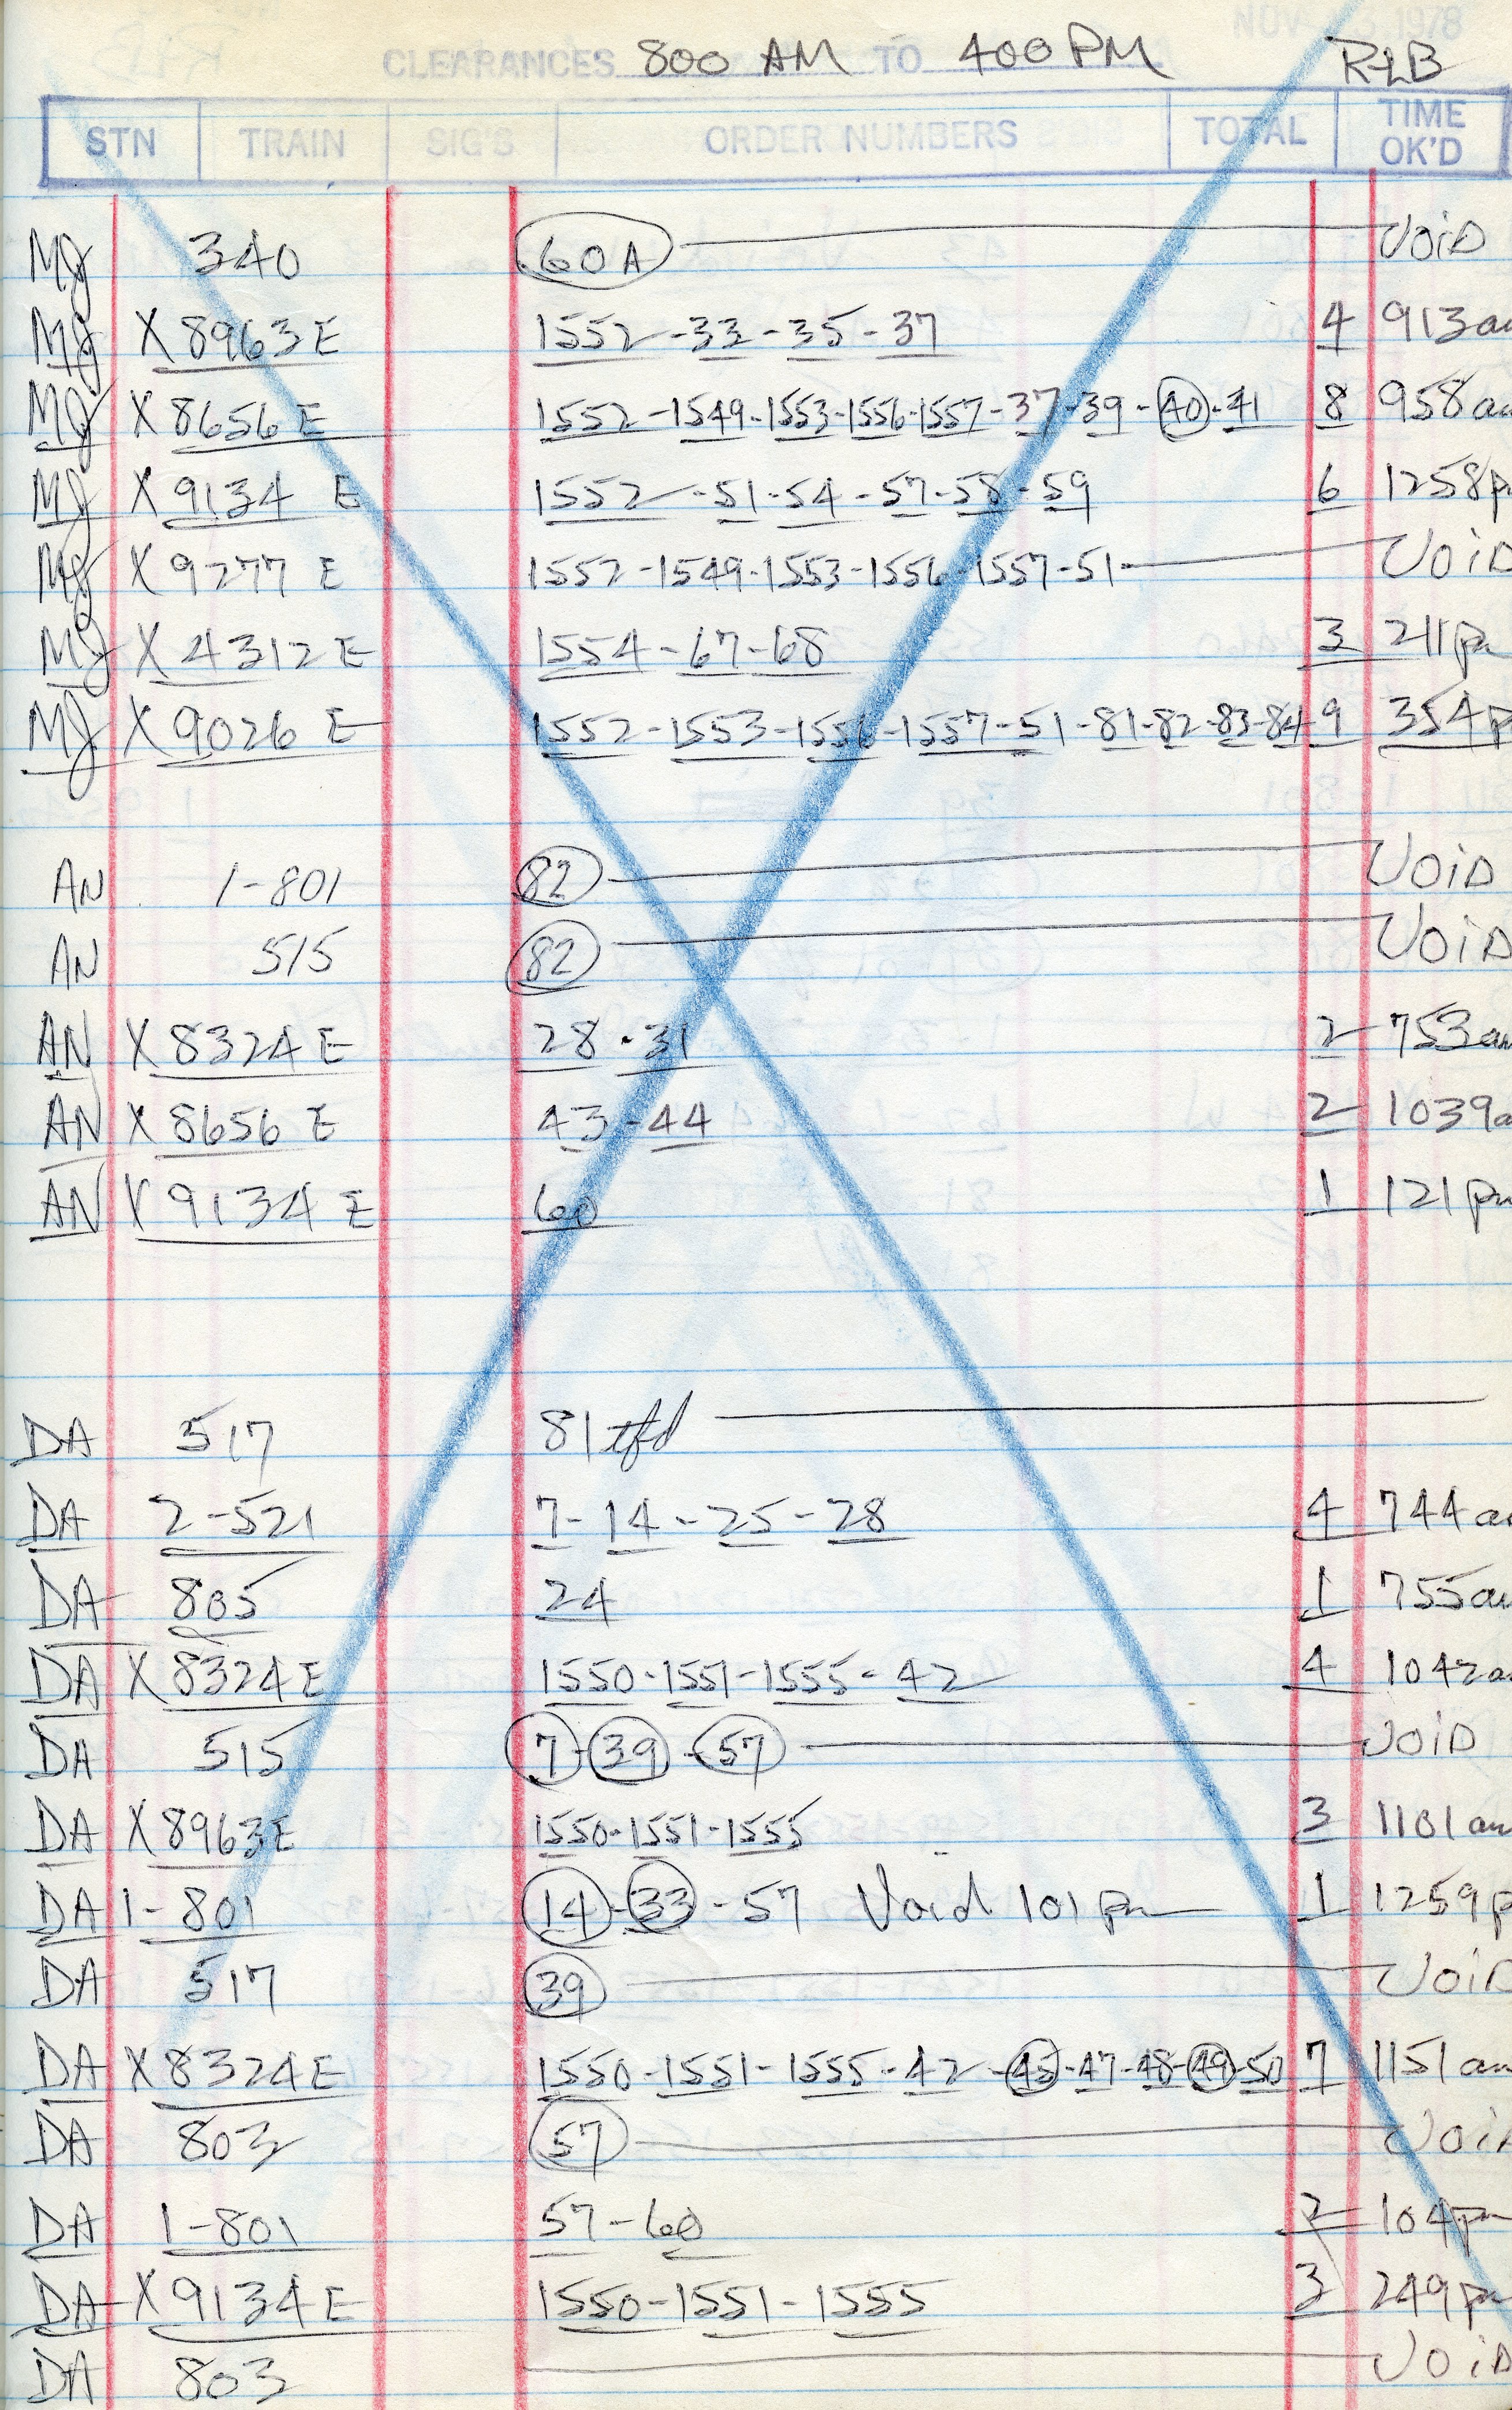 NOV 1978
CLEARANCES 800 AM TO 400 PM RLB
STN TRAIN SIG'S ORDER NUMBERS TOTAL TIME OK'D
MJ 340 60A VOID
MJ X 8963 E 1552-33-35-37 4 913 a
MJ X 8656 E 1552-1549-1553-1556-1557-37-39-40-41 8 958 a
MJ X 9134 E 1552-51-54-57-58-59 6 1258 p
MJ X 9277 E 1552-1549-1553-1556-1557-51 VOID
MJ X 4312 E 1554-67-68 3 211 pm
MJ X 9026 E 1552-1553-1556-1557-51-81-82-83-84 9 354 p
AN 1-801 82 VOID
AN 515 82 VOID
AN X 8324 E 28-31 2 753 am
AN X 8656 E 43-44 2 1039 a
AN X 9134 E 60 1 121 pm
DA 517 81 tfd
DA 2-521 7-14-25-28 4 744 a
DA 805 24 1 755 a
DA X 8324 E 1550-1551-1555-42 4 1042 a
DA 515 7-39-57 VOID
DA X 8963 E 1550-1551-1555 3 1101 am
DA 1-801 14-33-57 Void 101 pm 1 1259 p
DA 517 39 VOID
DA X 8324 E 1550-1551-1555-42-45-47-48-49-50 7 1151 am
DA 803 57 VOID
DA 1-801 57-60 2 104 pm
DA X 9134 E 1550-1551-1555 3 249 pm
DA 803 VOID